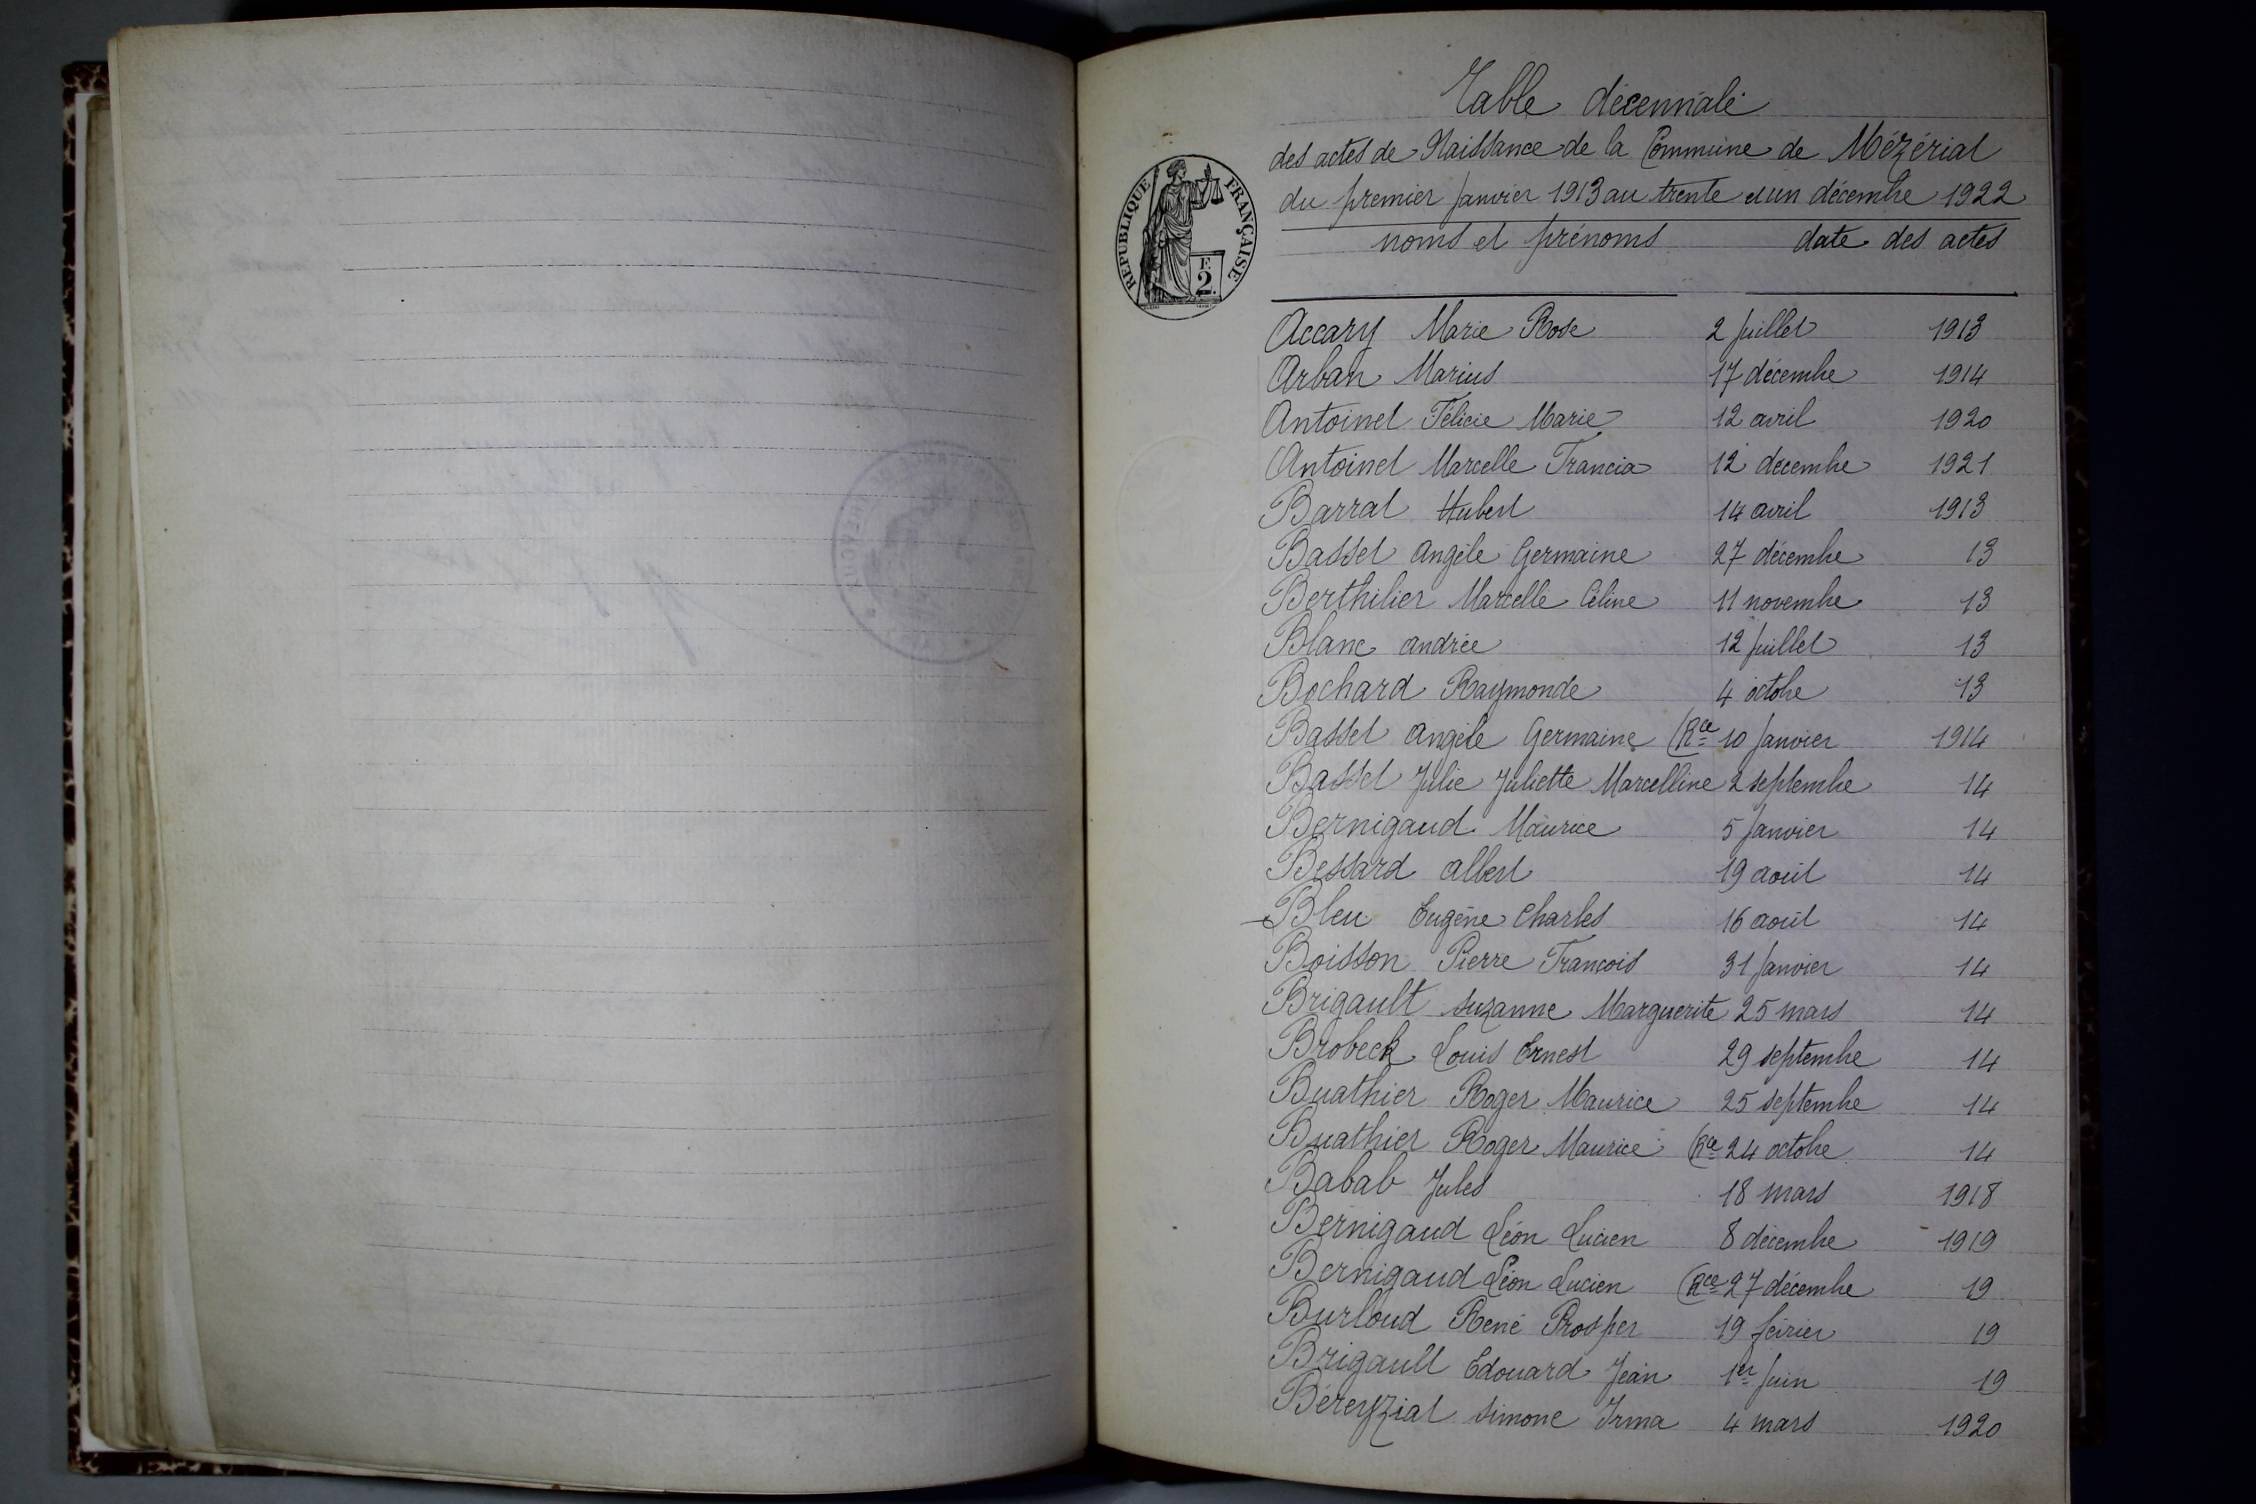 Table décennale
des actes de Naissance de la Commune de Mézériat
du premier Janvier 1913 au trente et un décembre 1922
noms et prénoms date des actes
RÉPUBLIQUE FRANÇAISE
F.
2.
Accary Marie Rose 2 Juillet 1913
Arban Marius 17 décembre 1914
Antoinet Félicie Marie 12 avril 1920
Antoinet Marcelle Francia 12 décembre 1921
Barrat Hubert 14 avril 1913
Basset Angèle Germaine 27 décembre 13
Berthilier Marcelle Céline 11 novembre 13
Blanc Andrée 12 Juillet 13
Bochard Raymonde 4 octobre 13
Basset Angèle Germaine (Rce 10 Janvier 1914
Basset Julie Juliette Marcelline 2 septembre 14
Bernigaud Maurice 5 Janvier 14
Bessard Albert 19 août 14
Bleu Eugène Charles 16 août 14
Boisson Pierre François 31 Janvier 14
Brigault Suzanne Marguerite 25 mars 14
Brobeck Louis Ernest 29 septembre 14
Buathier Roger Maurice 25 septembre 14
Buathier Roger Maurice (Rce 24 octobre 14
Babab Jules 18 mars 1918
Bernigaud Léon Lucien 8 décembre 1919
Bernigaud Léon Lucien (Rce 27 décembre 19
Burloud René Prosper 19 février 19
Brigault Edouard Jean 1er Juin 19
Béreyziat Simone Irma 4 mars 1920